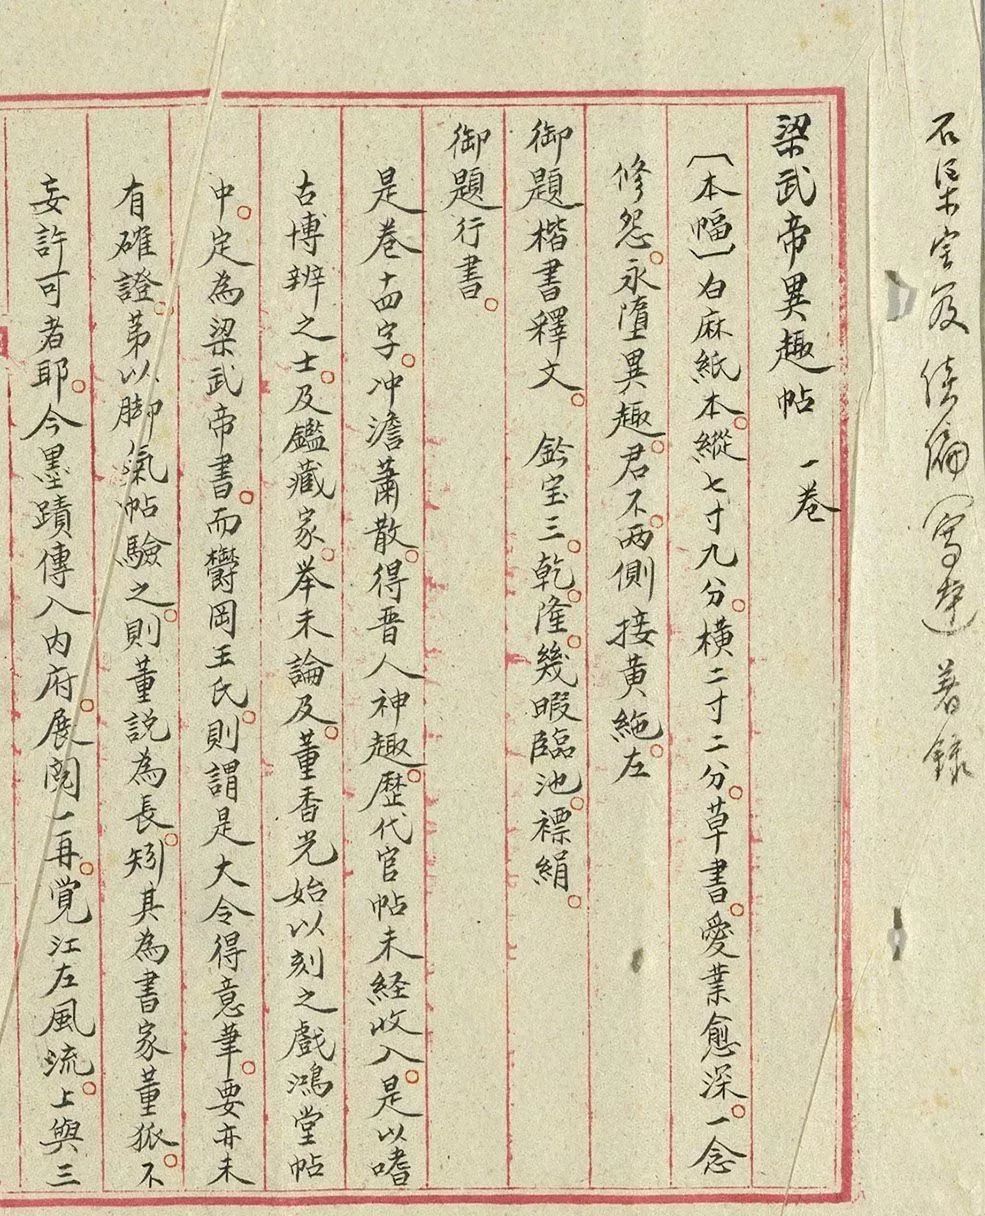 石渠宝笈续编 宁寿 著录
梁武帝異趣帖 一卷
〔本幅〕白麻紙本。縱七寸九分。橫二寸二分。草書。愛業愈深。一念
修怨。永墮異趣。君不。两側接黄絁。左
御題楷書釋文。 鈐宝三。乾隆。幾暇臨池。褾絹。
御題行書。
是卷十四字。冲澹蕭散。得晋人神趣。歷代官帖未経收入。是以嗜
古博辨之士。及鑑藏家。举未論及。董香光始以刻之戲鴻堂帖
中。定為梁武帝書。而欝岡王氏。則謂是大令得意筆。要亦未
有確證。苐以脚氣帖驗之。則董説為長。矧其為書家董狐。不
妄許可者耶。今墨蹟傳入内府。展阅一再。覚江左風流。上與三